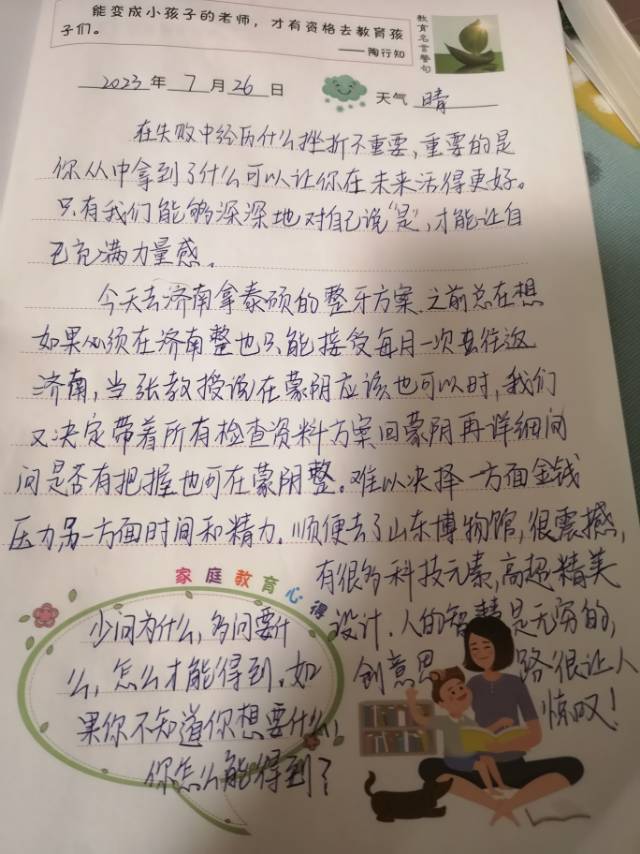 能变成小孩子的老师，才有资格去教育孩
子们。
——陶行知
教育名言警句
2023年7月26日
天气 晴
在失败中经历什么挫折不重要，重要的是
你从中拿到了什么可以让你在未来活得更好。
只有我们能够深深地对自己说“是”，才能让自
己充满力量感。
今天去济南拿泰硕的整牙方案，之前总在想
如果必须在济南整也只能接受每月一次去往返
济南，当张教授说在蒙阴应该也可以时，我们
又决定带着所有检查资料方案回蒙阴再详细问
问是否有把握也可在蒙阴整。难以决择一方面金钱
压力，另一方面时间和精力。顺便去了山东博物馆，很震撼，
有很多科技元素，高超精美
设计，人的智慧是无穷的，
创意思路很让人
惊叹！
家庭教育心得
少问为什么，多问要什
么，怎么才能得到。如
果你不知道你想要什么，
你怎么能得到？